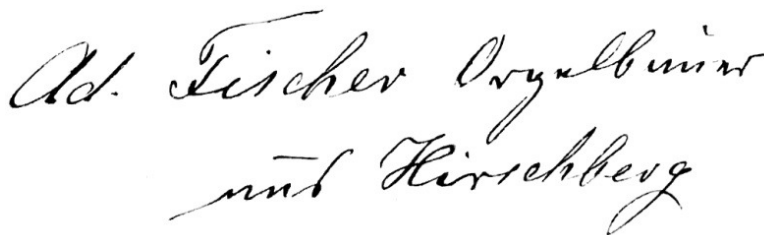 Ad. Fischer Orgelbauer
aus Hirschberg